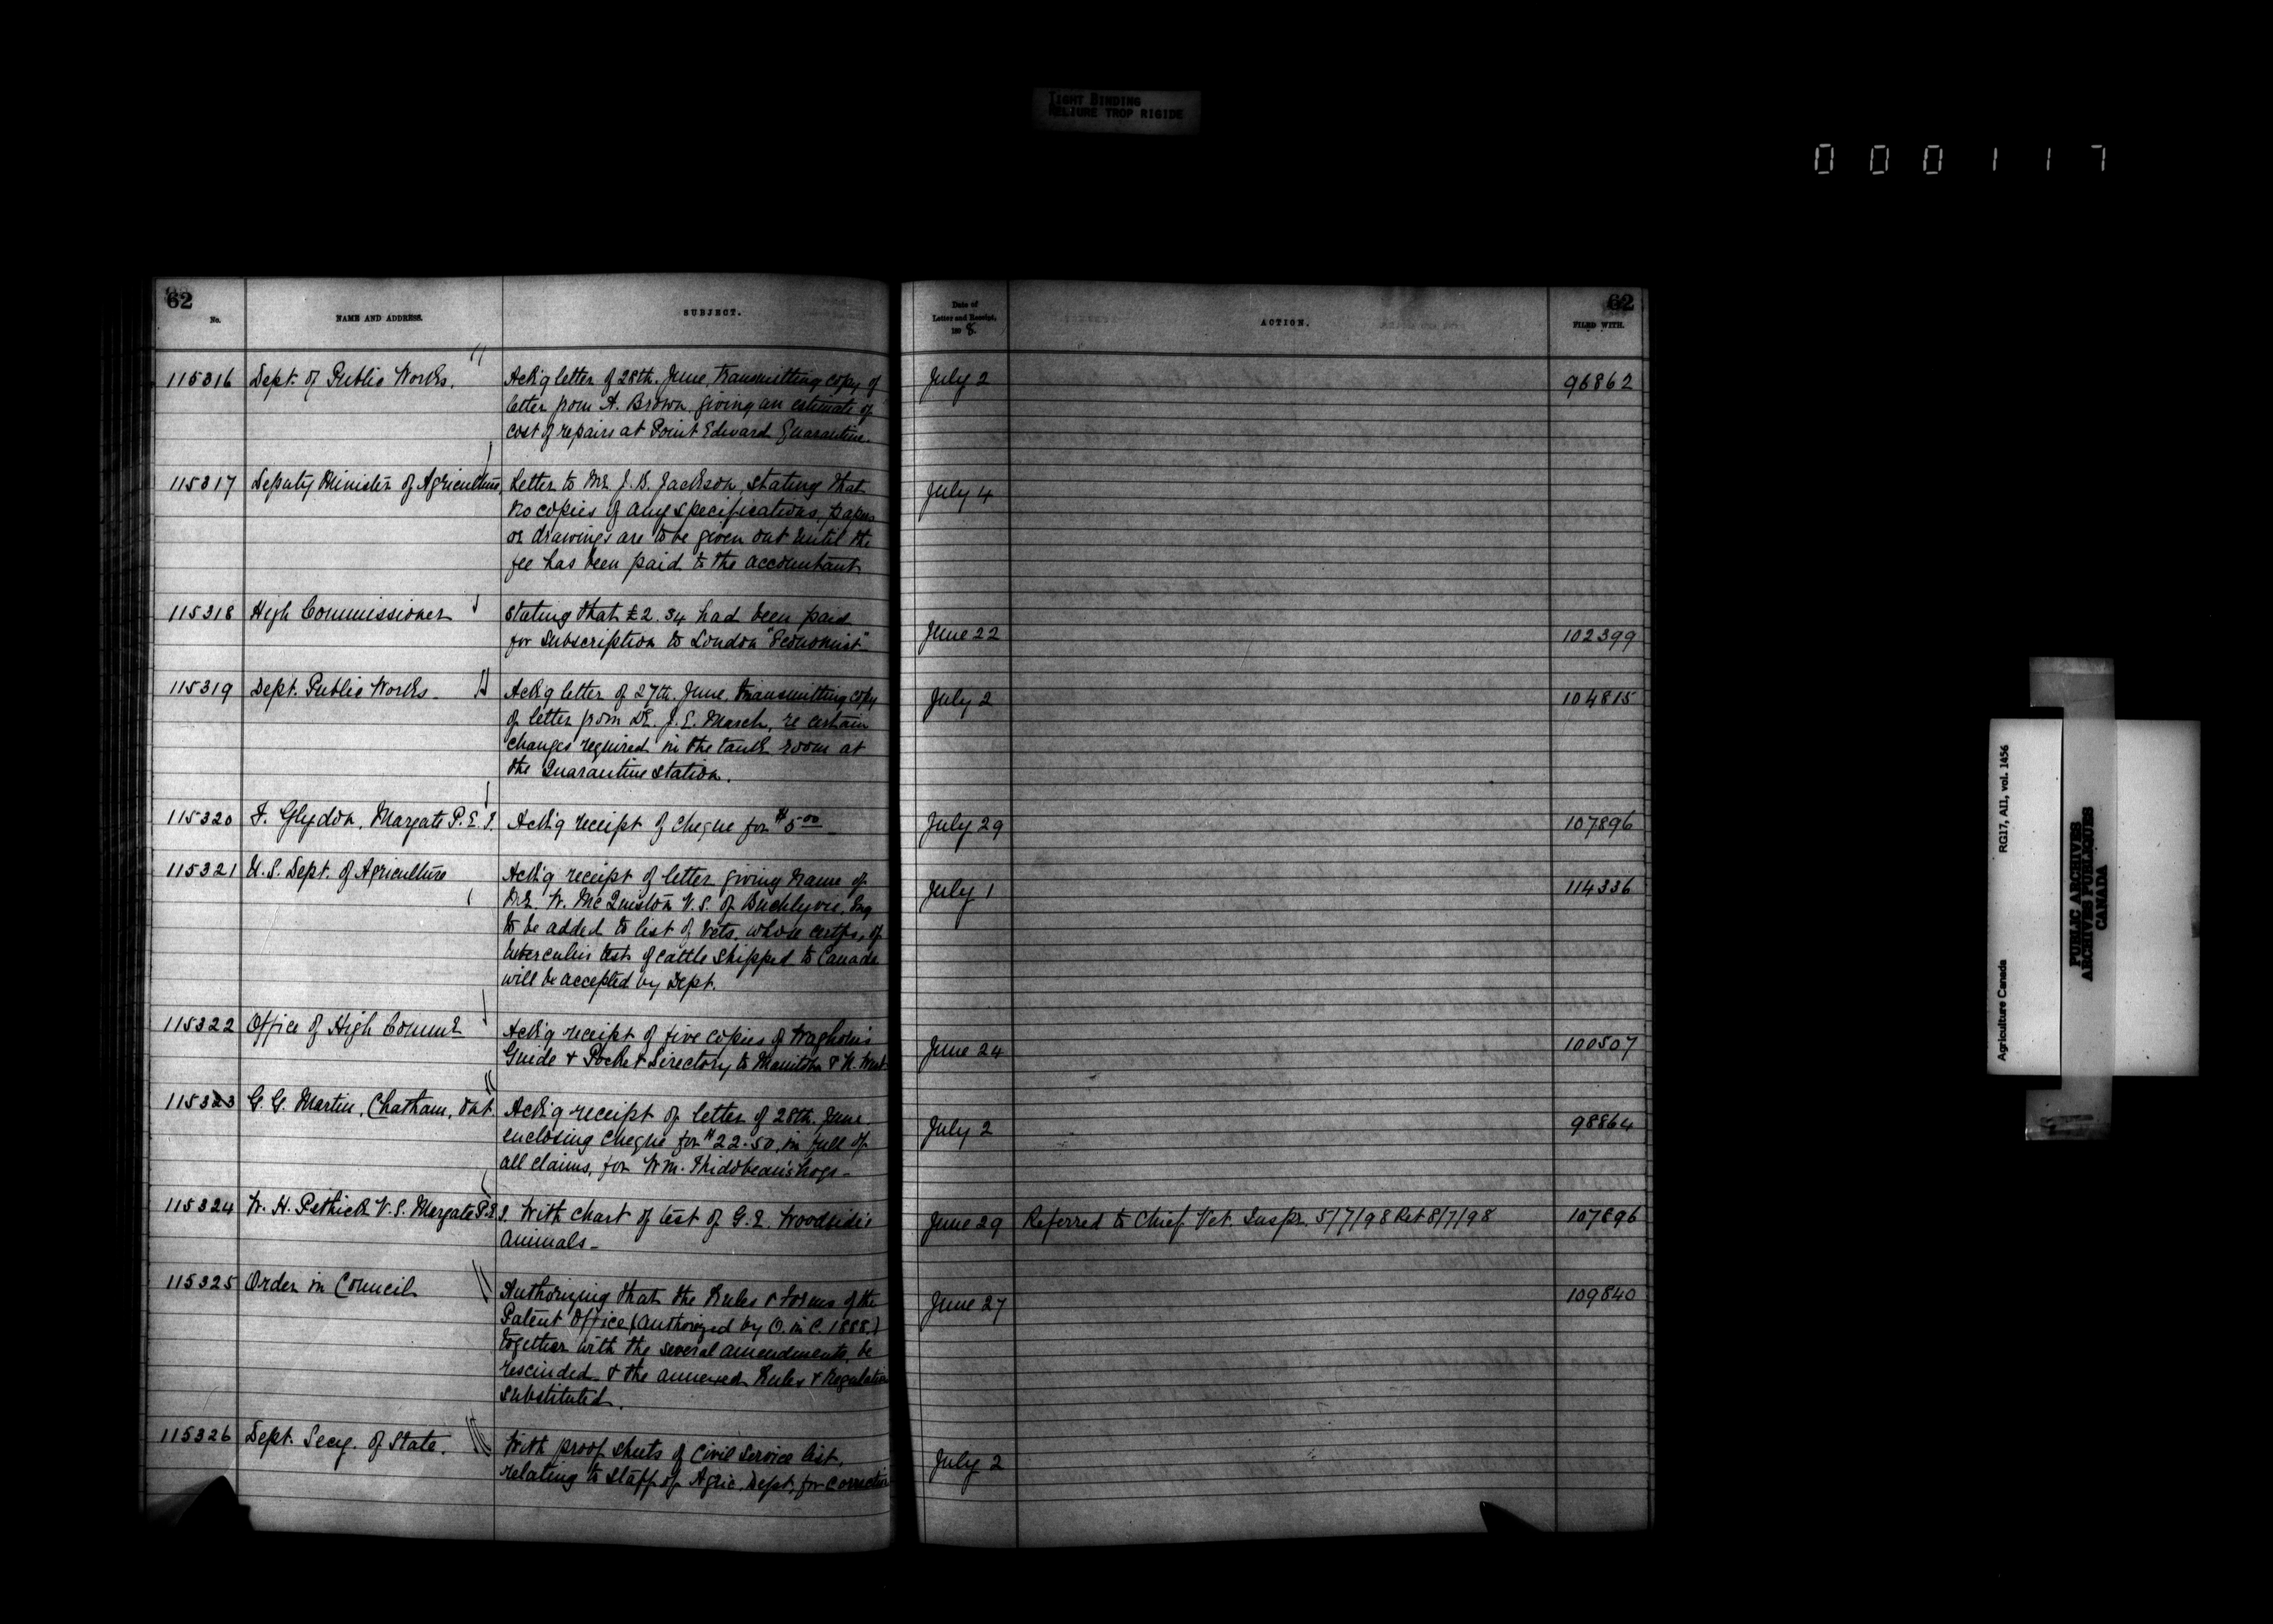 TIGHT BINDING
RELIURE TROP RIGIDE
000117
62
No.
NAME AND ADDRESS.
SUBJECT.
Date of
Letter and Receipt.
189 8.
ACTION.
62
FILED WITH.
115316 Dept. of Public Works. Ack'g letter of 28th. June, transmitting copy of July 2 96862
letter from A. Brown, giving an estimate of
cost of repairs at Point Edward Quarantine.
115317 Deputy Minister of Agriculture, Letter to Mr. J. B. Jackson, stating that July 4
no copies of any specifications, papers
or drawings are to be given out until the
fee has been paid to the accountant
115318 High Commissioner Stating that £2.34 had been paid
for subscription to London "Economist" June 22 102399
115319 Dept. Public Works Ack'g letter of 27th. June, transmitting copy July 2 104815
of letter from Dr. J. E. March, re certain
changes required in the tank room at
the Quarantine Station.
115320 F. Glydon, Margate P.E.I. Ack'g receipt of cheque for $5.00 July 29 107896
115321 U.S. Dept. of Agriculture Ack'g receipt of letter giving name of July 1 114336
Mr. W. McQuiston V.S. of Eng
to be added to list of Vets. whose certfs. of
tuberculin test of cattle shipped to Canada
will be accepted by Dept.
115322 Office of High Commr. Ack'g receipt of five copies of Waghorn's
Guide & Pocket Directory to Manitoba & N. West June 24 100507
115323 G. G. Martin, Chatham, Ont. Ack'g receipt of letter of 28th. June
enclosing cheque for $22.50, in full of July 2 98864
all claims, for Wm. hogs
115324 W. H. Pethick V.S. Margate P.E.I. With chart of test of G. E. Woodside's June 29 Referred to Chief Vet. Inspr. 5/7/98 Ret 8/7/98 107896
animals
115325 Order in Council Authorizing that the Rules & Forms of the June 27 109840
Patent Office (authorized by O. in C. 1888.)
together with the several amendments, be
rescinded, & the annexed Rules & Regulations
substituted.
115326 Dept. Secy. of State. With proof sheets of Civil Service list, July 2
relating to staff of Agric. Dept, for correction
Agriculture Canada RG17, AII, vol. 1456
PUBLIC ARCHIVES
ARCHIVES PUBLIQUES
CANADA